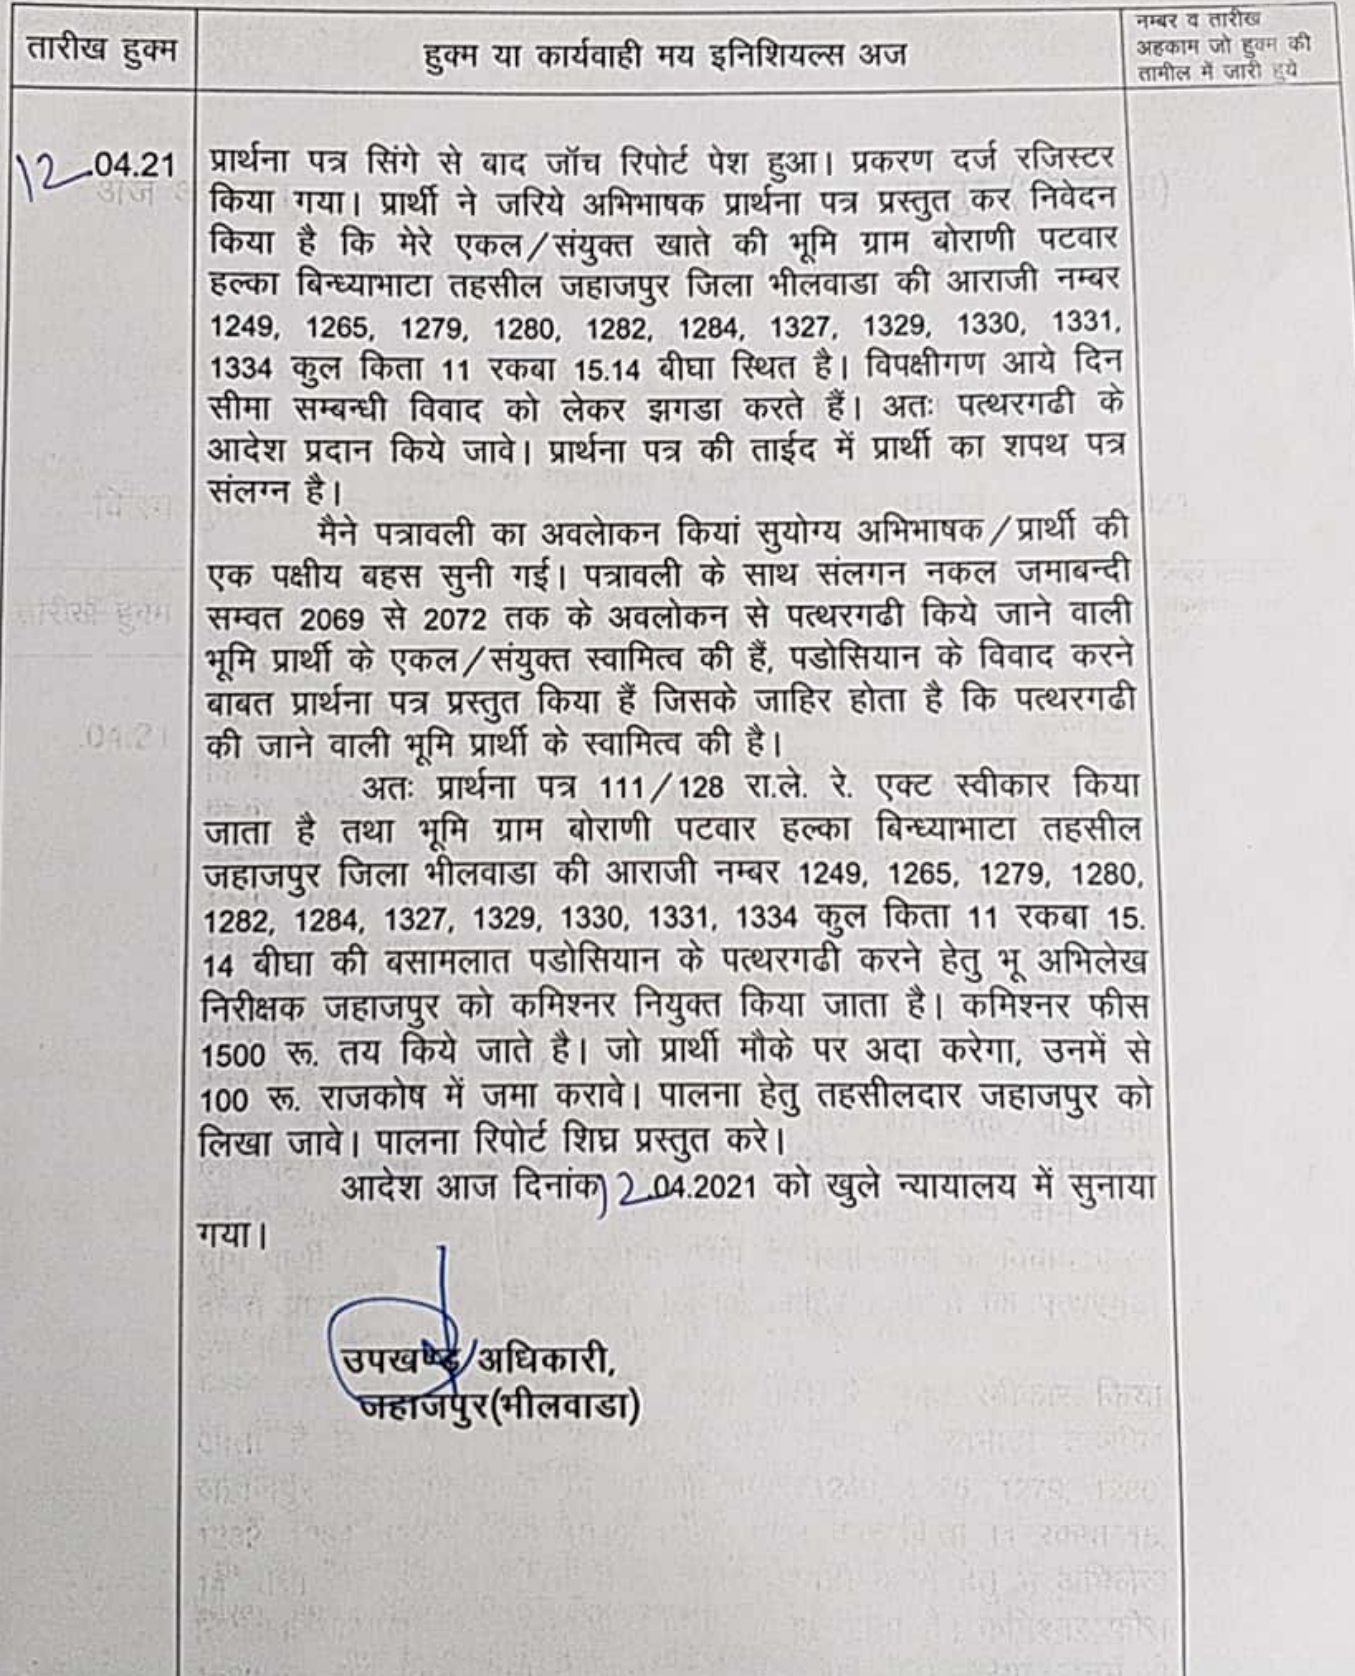 तारीख हुक्म
हुक्म या कार्यवाही मय इनिशियल्स अज
नम्बर व तारीख
अहकाम जो हुक्म की
तामील में जारी हुये
12.04.21
प्रार्थना पत्र सिंगे से बाद जॉच रिपोर्ट पेश हुआ। प्रकरण दर्ज रजिस्टर
किया गया। प्रार्थी ने जरिये अभिभाषक प्रार्थना पत्र प्रस्तुत कर निवेदन
किया है कि मेरे एकल/संयुक्त खाते की भूमि ग्राम बोराणी पटवार
हल्का बिन्ध्याभाटा तहसील जहाजपुर जिला भीलवाडा की आराजी नम्बर
1249, 1265, 1279, 1280, 1282, 1284, 1327, 1329, 1330, 1331,
1334 कुल किता 11 रकबा 15.14 बीघा स्थित है। विपक्षीगण आये दिन
सीमा सम्बन्धी विवाद को लेकर झगडा करते हैं। अतः पत्थरगढी के
आदेश प्रदान किये जावे। प्रार्थना पत्र की ताईद में प्रार्थी का शपथ पत्र
संलग्न है।
मैने पत्रावली का अवलेाकन कियां सुयोग्य अभिभाषक/प्रार्थी की
एक पक्षीय बहस सुनी गई। पत्रावली के साथ संलगन नकल जमाबन्दी
सम्वत 2069 से 2072 तक के अवलोकन से पत्थरगढी किये जाने वाली
भूमि प्रार्थी के एकल/संयुक्त स्वामित्व की हैं, पडोसियान के विवाद करने
बाबत प्रार्थना पत्र प्रस्तुत किया हैं जिसके जाहिर होता है कि पत्थरगढी
की जाने वाली भूमि प्रार्थी के स्वामित्व की है।
अतः प्रार्थना पत्र 111/128 रा.ले. रे. एक्ट स्वीकार किया
जाता है तथा भूमि ग्राम बोराणी पटवार हल्का बिन्ध्याभाटा तहसील
जहाजपुर जिला भीलवाडा की आराजी नम्बर 1249, 1265, 1279, 1280,
1282, 1284, 1327, 1329, 1330, 1331, 1334 कुल किता 11 रकबा 15.
14 बीघा की बसामलात पडोसियान के पत्थरगढी करने हेतु भू अभिलेख
निरीक्षक जहाजपुर को कमिश्नर नियुक्त किया जाता है। कमिश्नर फीस
1500 रू. तय किये जाते है। जो प्रार्थी मौके पर अदा करेगा, उनमें से
100 रू. राजकोष में जमा करावे। पालना हेतु तहसीलदार जहाजपुर को
लिखा जावे। पालना रिपोर्ट शिघ्र प्रस्तुत करे।
आदेश आज दिनांक 12.04.2021 को खुले न्यायालय में सुनाया
गया।
उपखण्ड अधिकारी,
जहाजपुर(भीलवाडा)